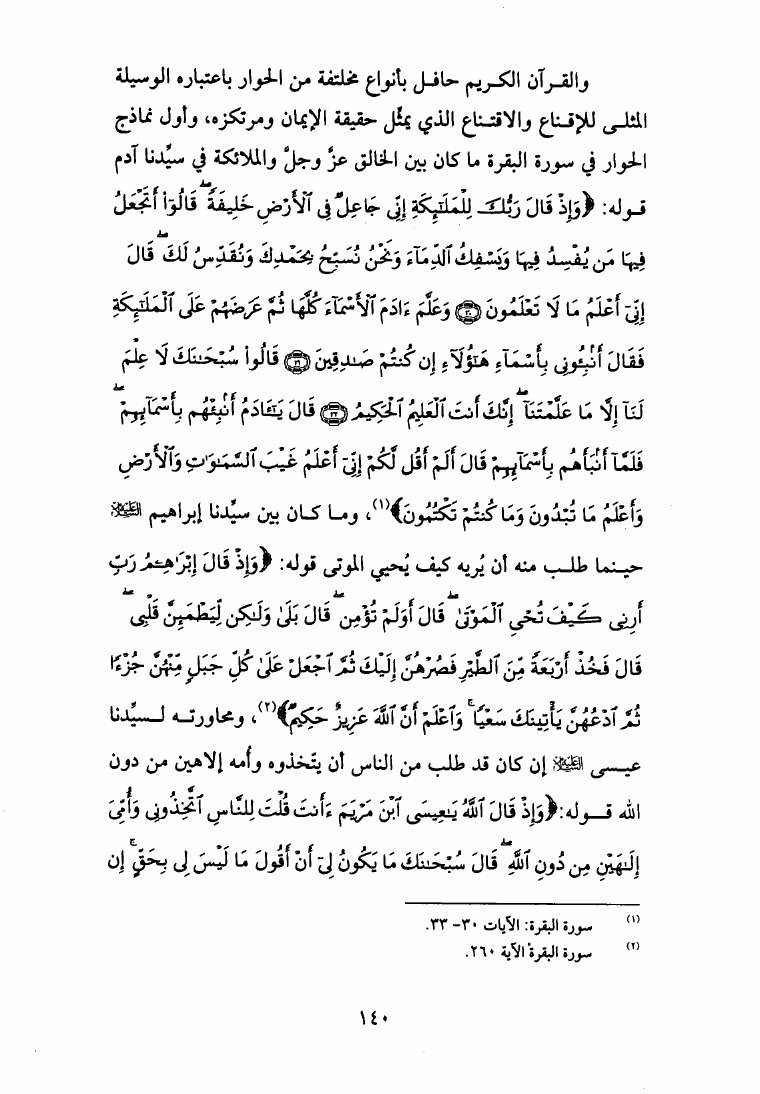 والقـرآن الكـريم حافـل بأنواع مختلفة من الحوار باعتباره الوسيلة
المثلـى للإقـناع والاقتـناع الذي يمثّل حقيقة الإيمان ومرتكزه، وأول نماذج
الحوار في سورة البقرة ما كان بين الخالق عزَّ وجلَّ والملائكة في سيِّدنا آدم
قـوله: ﴿وَإِذْ قَالَ رَبُّكَ لِلْمَلَٰٓئِكَةِ إِنِّى جَاعِلٌ فِى ٱلْأَرْضِ خَلِيفَةً ۖ قَالُوٓا۟ أَتَجْعَلُ
فِيهَا مَن يُفْسِدُ فِيهَا وَيَسْفِكُ ٱلدِّمَآءَ وَنَحْنُ نُسَبِّحُ بِحَمْدِكَ وَنُقَدِّسُ لَكَ ۖ قَالَ
إِنِّىٓ أَعْلَمُ مَا لَا تَعْلَمُونَ ﴿٣٠﴾ وَعَلَّمَ ءَادَمَ ٱلْأَسْمَآءَ كُلَّهَا ثُمَّ عَرَضَهُمْ عَلَى ٱلْمَلَٰٓئِكَةِ
فَقَالَ أَنۢبِـُٔونِى بِأَسْمَآءِ هَٰٓؤُلَآءِ إِن كُنتُمْ صَٰدِقِينَ ﴿٣١﴾ قَالُوا۟ سُبْحَٰنَكَ لَا عِلْمَ
لَنَآ إِلَّا مَا عَلَّمْتَنَآ ۖ إِنَّكَ أَنتَ ٱلْعَلِيمُ ٱلْحَكِيمُ ﴿٣٢﴾ قَالَ يَٰٓـَٔادَمُ أَنۢبِئْهُم بِأَسْمَآئِهِمْ ۖ
فَلَمَّآ أَنۢبَأَهُم بِأَسْمَآئِهِمْ قَالَ أَلَمْ أَقُل لَّكُمْ إِنِّىٓ أَعْلَمُ غَيْبَ ٱلسَّمَٰوَٰتِ وَٱلْأَرْضِ
وَأَعْلَمُ مَا تُبْدُونَ وَمَا كُنتُمْ تَكْتُمُونَ﴾(١)، ومـا كـان بين سيِّدنا إبراهيم
حيـنما طلـب منه أن يُريه كيف يُحيي الموتى قوله: ﴿وَإِذْ قَالَ إِبْرَٰهِـۧمُ رَبِّ
أَرِنِى كَيْفَ تُحْىِ ٱلْمَوْتَىٰ ۖ قَالَ أَوَلَمْ تُؤْمِن ۖ قَالَ بَلَىٰ وَلَٰكِن لِّيَطْمَئِنَّ قَلْبِى ۖ
قَالَ فَخُذْ أَرْبَعَةً مِّنَ ٱلطَّيْرِ فَصُرْهُنَّ إِلَيْكَ ثُمَّ ٱجْعَلْ عَلَىٰ كُلِّ جَبَلٍ مِّنْهُنَّ جُزْءًا
ثُمَّ ٱدْعُهُنَّ يَأْتِينَكَ سَعْيًا ۚ وَٱعْلَمْ أَنَّ ٱللَّهَ عَزِيزٌ حَكِيمٌ﴾(٢)، ومحاورتـه لـسيِّدنا
عيـسى إن كان قد طلب من الناس أن يتّخذوه وأمه إلاهين من دون
الله قــوله:﴿وَإِذْ قَالَ ٱللَّهُ يَٰعِيسَى ٱبْنَ مَرْيَمَ ءَأَنتَ قُلْتَ لِلنَّاسِ ٱتَّخِذُونِى وَأُمِّىَ
إِلَٰهَيْنِ مِن دُونِ ٱللَّهِ ۖ قَالَ سُبْحَٰنَكَ مَا يَكُونُ لِىٓ أَنْ أَقُولَ مَا لَيْسَ لِى بِحَقٍّ ۚ إِن
(١) سورة البقرة: الآيات ٣٠- ٣٣.
(٢) سورة البقرة الآية ٢٦٠.
١٤٠